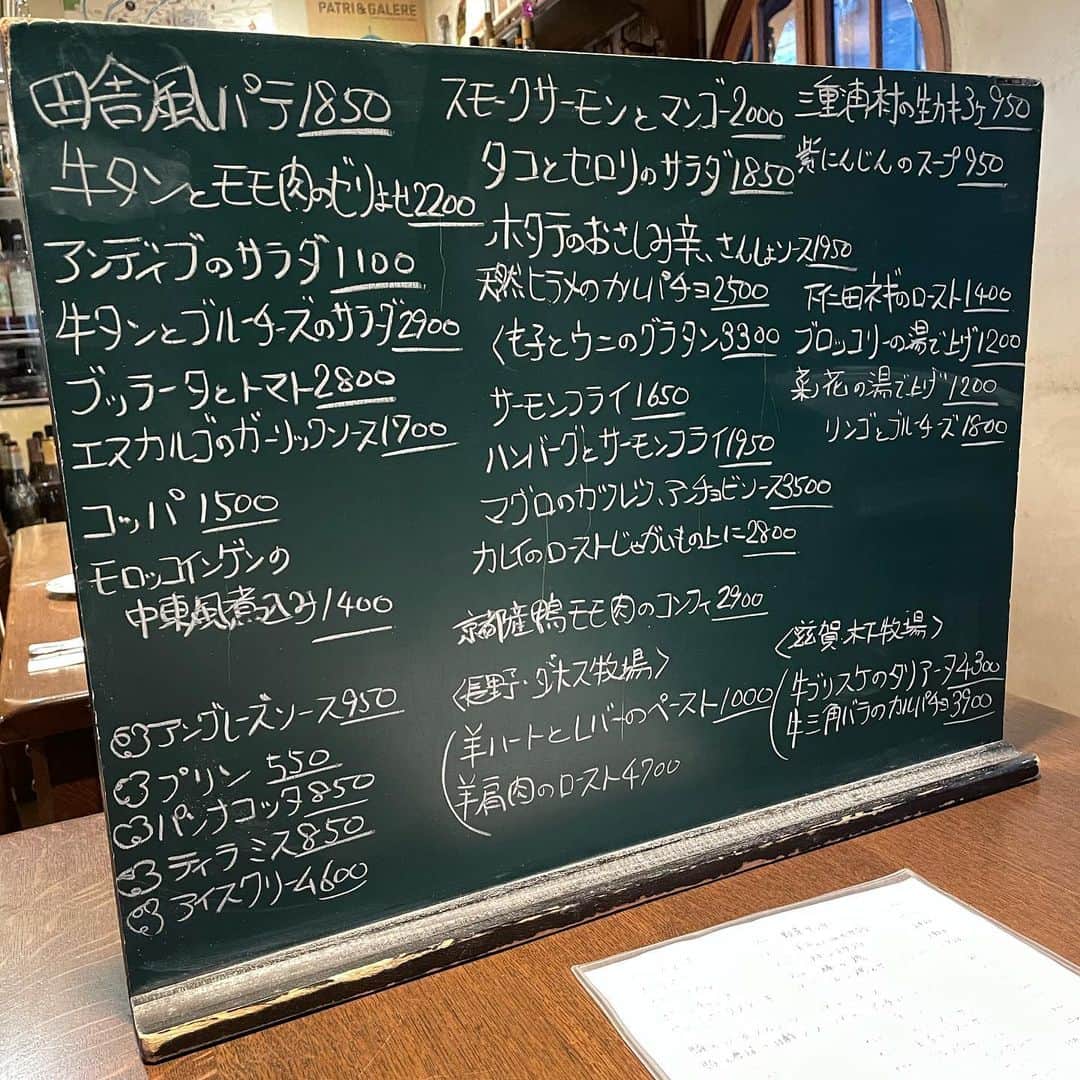 PATRI & GALERE
田舎風パテ1850
牛タンとモモ肉のゼリよせ2200
アンディブのサラダ1100
牛タンとブルーチーズのサラダ2900
ブッラータとトマト2800
エスカルゴのガーリックソース1700
コッパ1500
モロッコインゲンの
中東風煮込み1400
アングレーズソース950
プリン550
パンナコッタ850
ティラミス850
アイスクリーム600
スモークサーモンとマンゴー2000
タコとセロリのサラダ1850
ホタテのおさしみ辛、さんしょソース1950
天然ヒラメのカルパチョ2500
くも子とウニのグラタン3300
サーモンフライ1650
ハンバーグとサーモンフライ1950
マグロのカツレツ、アンチョビソース3500
カレイのローストじゃがいもの上に2800
京都産鴨モモ肉のコンフィ2900
〈長野・ダボス牧場〉
羊ハートとレバーのペースト1000
羊肩肉のロースト4700
三重浦村の生カキ3ヶ950
紫にんじんのスープ950
下仁田ネギのロースト1400
ブロッコリーの湯で上げ1200
菜の花の湯で上げ1200
リンゴとブルーチーズ1800
〈滋賀・木下牧場〉
牛ブリスケのタリアータ4300
牛三角バラのカルパチョ3900